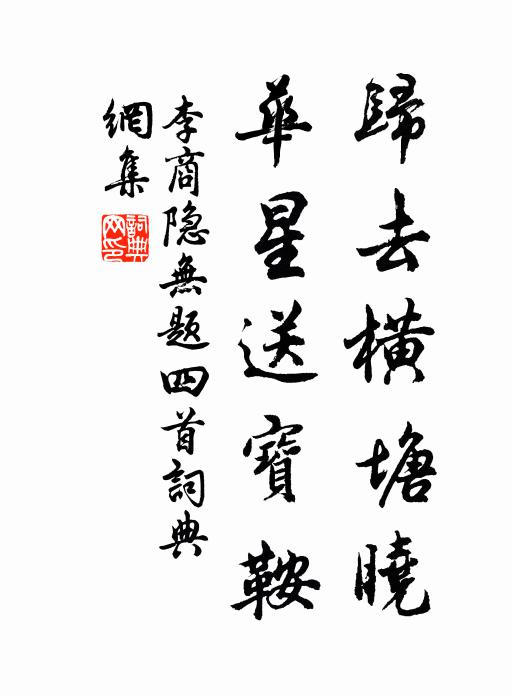 歸去橫塘曉
華星送寶鞍
李商隐無題四首詞典
網集
詞典网印